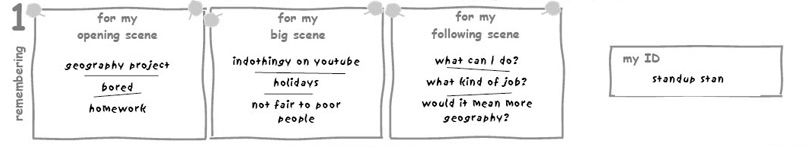 1
remembering
for my
opening scene
geography project
bored
homework
for my
big scene
indothingy on youtube
holidays
not fair to poor
people
for my
following scene
what can I do?
what kind of job?
would it mean more
geography?
my ID
standup stan